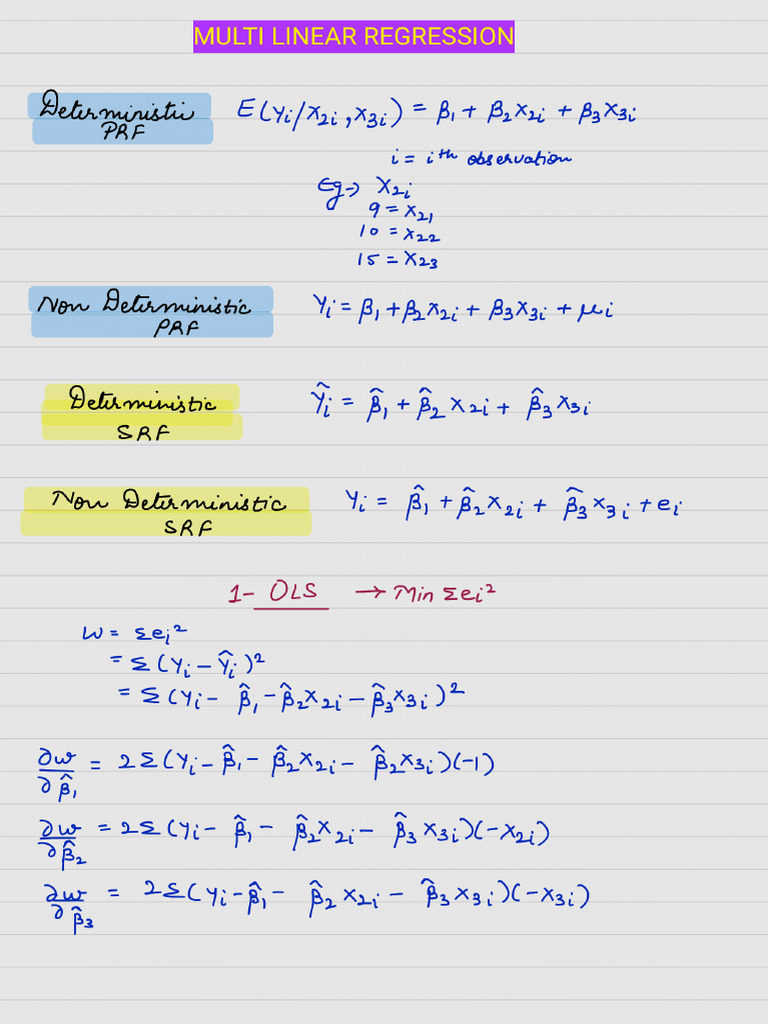 MULTI LINEAR REGRESSION
Deterministic E(Yi/X2i, X3i) = β1 + β2X2i + β3X3i
PRF
i = ith observation
Eg→ X2i
9 = X21
10 = X22
15 = X23
Non Deterministic Yi = β1 + β2X2i + β3X3i + μi
PRF
Deterministic Ŷi = β̂1 + β̂2 X2i + β̂3 X3i
SRF
Non Deterministic Yi = β̂1 + β̂2X2i + β̂3X3i + ei
SRF
1- OLS → Min Σei²
W = Σei²
= Σ(Yi - Ŷi)²
= Σ(Yi - β̂1 - β̂2X2i - β̂3X3i)²
∂w/∂β̂1 = 2Σ(Yi - β̂1 - β̂2X2i - β̂2X3i)(-1)
∂w/∂β̂2 = 2Σ(Yi - β̂1 - β̂2X2i - β̂3X3i)(-X2i)
∂w/∂β̂3 = 2Σ(Yi - β̂1 - β̂2X2i - β̂3X3i)(-X3i)